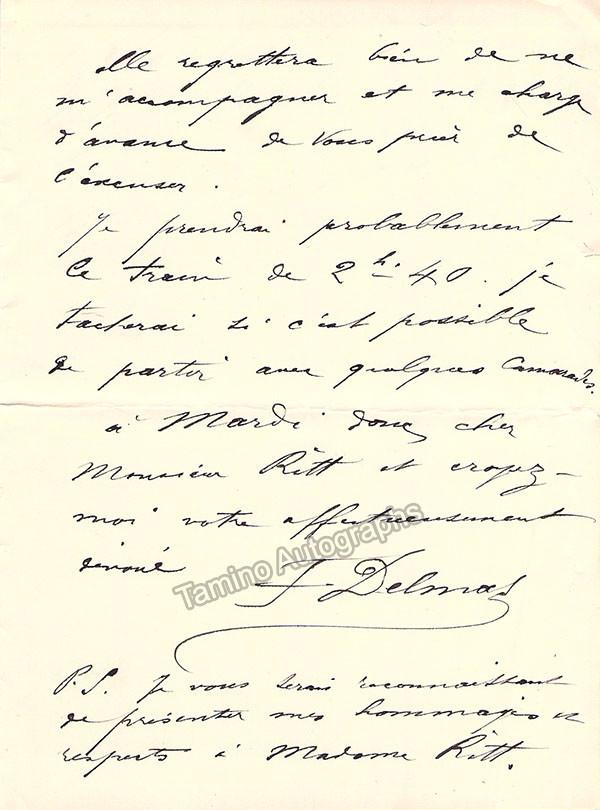 Elle regrettera bien de ne
m'accompagner et me charge
d'avance de vous prier de
l'excuser.
Je prendrai probablement
le train de 2 h. 40. je
tacherai si c'est possible
de partir avec quelques Camarades.
à Mardi donc cher
Monsieur Ritt et croyez-
moi votre affectueusement
dévoué F. Delmas
Tamino Autographs
P.S. Je vous serais reconnaissant
de présenter mes hommages et
respects à Madame Ritt.